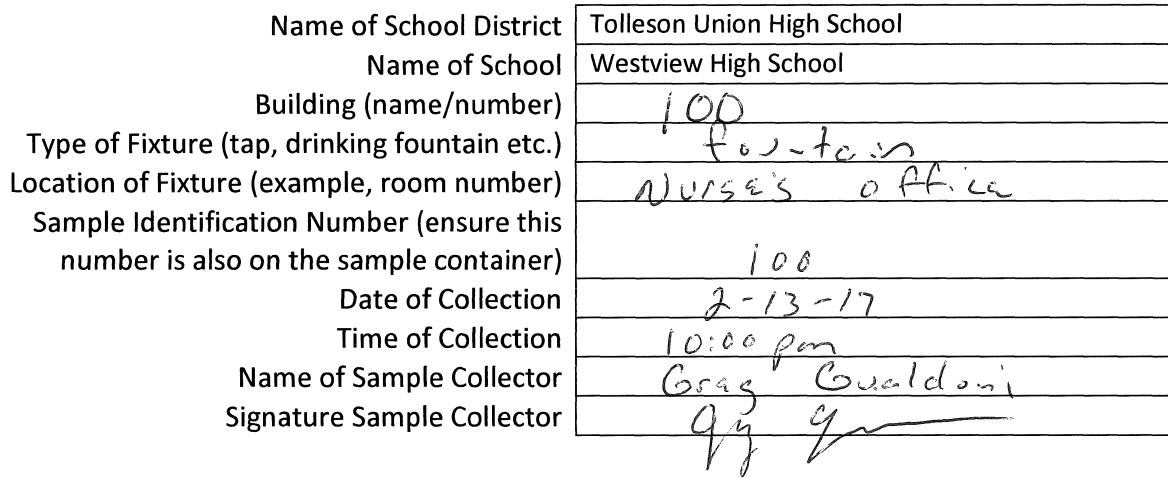 Name of School District Tolleson Union High School
Name of School Westview High School
Building (name/number) 100
Type of Fixture (tap, drinking fountain etc.) fountain
Location of Fixture (example, room number) Nurse's office
Sample Identification Number (ensure this
number is also on the sample container) 100
Date of Collection 2-13-17
Time of Collection 10:00 pm
Name of Sample Collector Greg Gualdoni
Signature Sample Collector